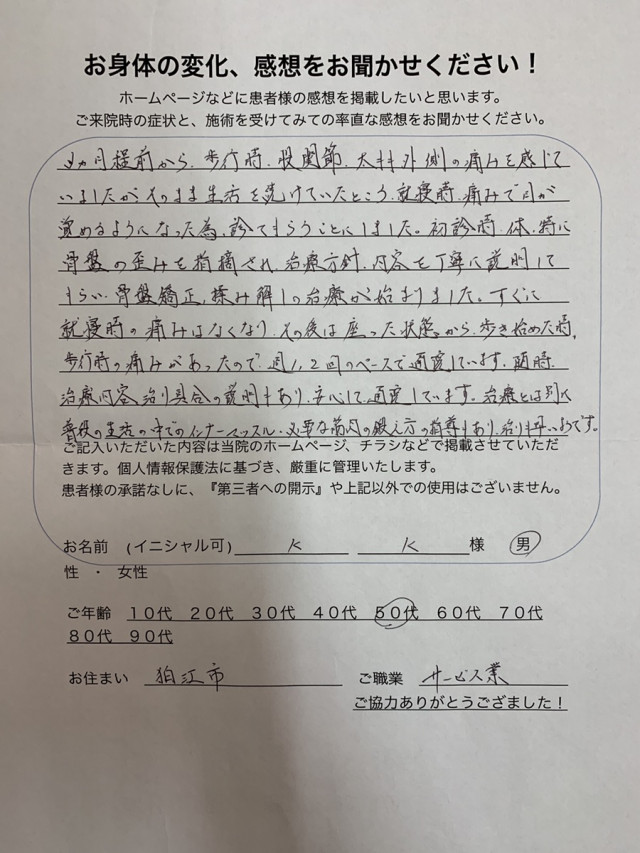 お身体の変化、感想をお聞かせください！
ホームページなどに患者様の感想を掲載したいと思います。
ご来院時の症状と、施術を受けてみての率直な感想をお聞かせください。
カ月程前から、歩行時、股関節、太もも外側の痛みを感じて
いましたがそのまま生活を続けていたところ、就寝時、痛みで目が
覚めるようになった為、診てもらうことにしました。初診時、体、特に
骨盤の歪みを指摘され、治療方針、内容を丁寧に説明して
もらい、骨盤矯正、揉み解しの治療が始まりました。すぐに
就寝時の痛みはなくなり、その後は座った状態から、歩き始めた時、
歩行時の痛みがあったので、週1,2回のペースで通院しています。随時、
治療内容、治り具合の説明もあり、安心して通院しています。治療とは別に
普段の生活の中でのインナーマッスル、必要な筋肉の鍛え方の指導もあり、治りも早いようです。
ご記入いただいた内容は当院のホームページ、チラシなどで掲載させていただ
きます。個人情報保護法に基づき、厳重に管理いたします。
患者様の承諾なしに、『第三者への開示』や上記以外での使用はございません。
お名前 (イニシャル可) K K 様 男
性 ・ 女性
ご年齢 10代 20代 30代 40代 50代 60代 70代
80代 90代
お住まい 狛江市 ご職業 サービス業
ご協力ありがとうござました！